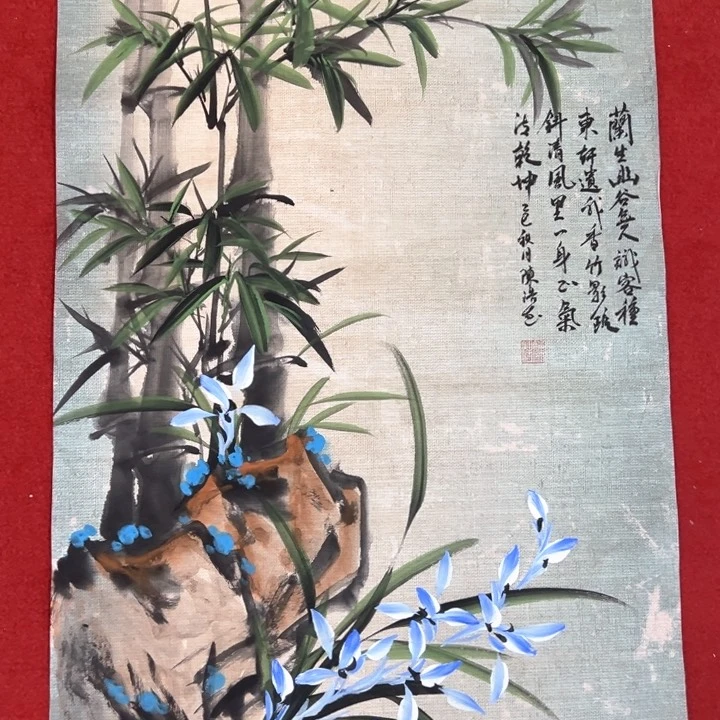 蘭生幽谷無人識客種
東軒遺我香竹影疏
斜清風里一身正氣
乾坤 秋月陳浩